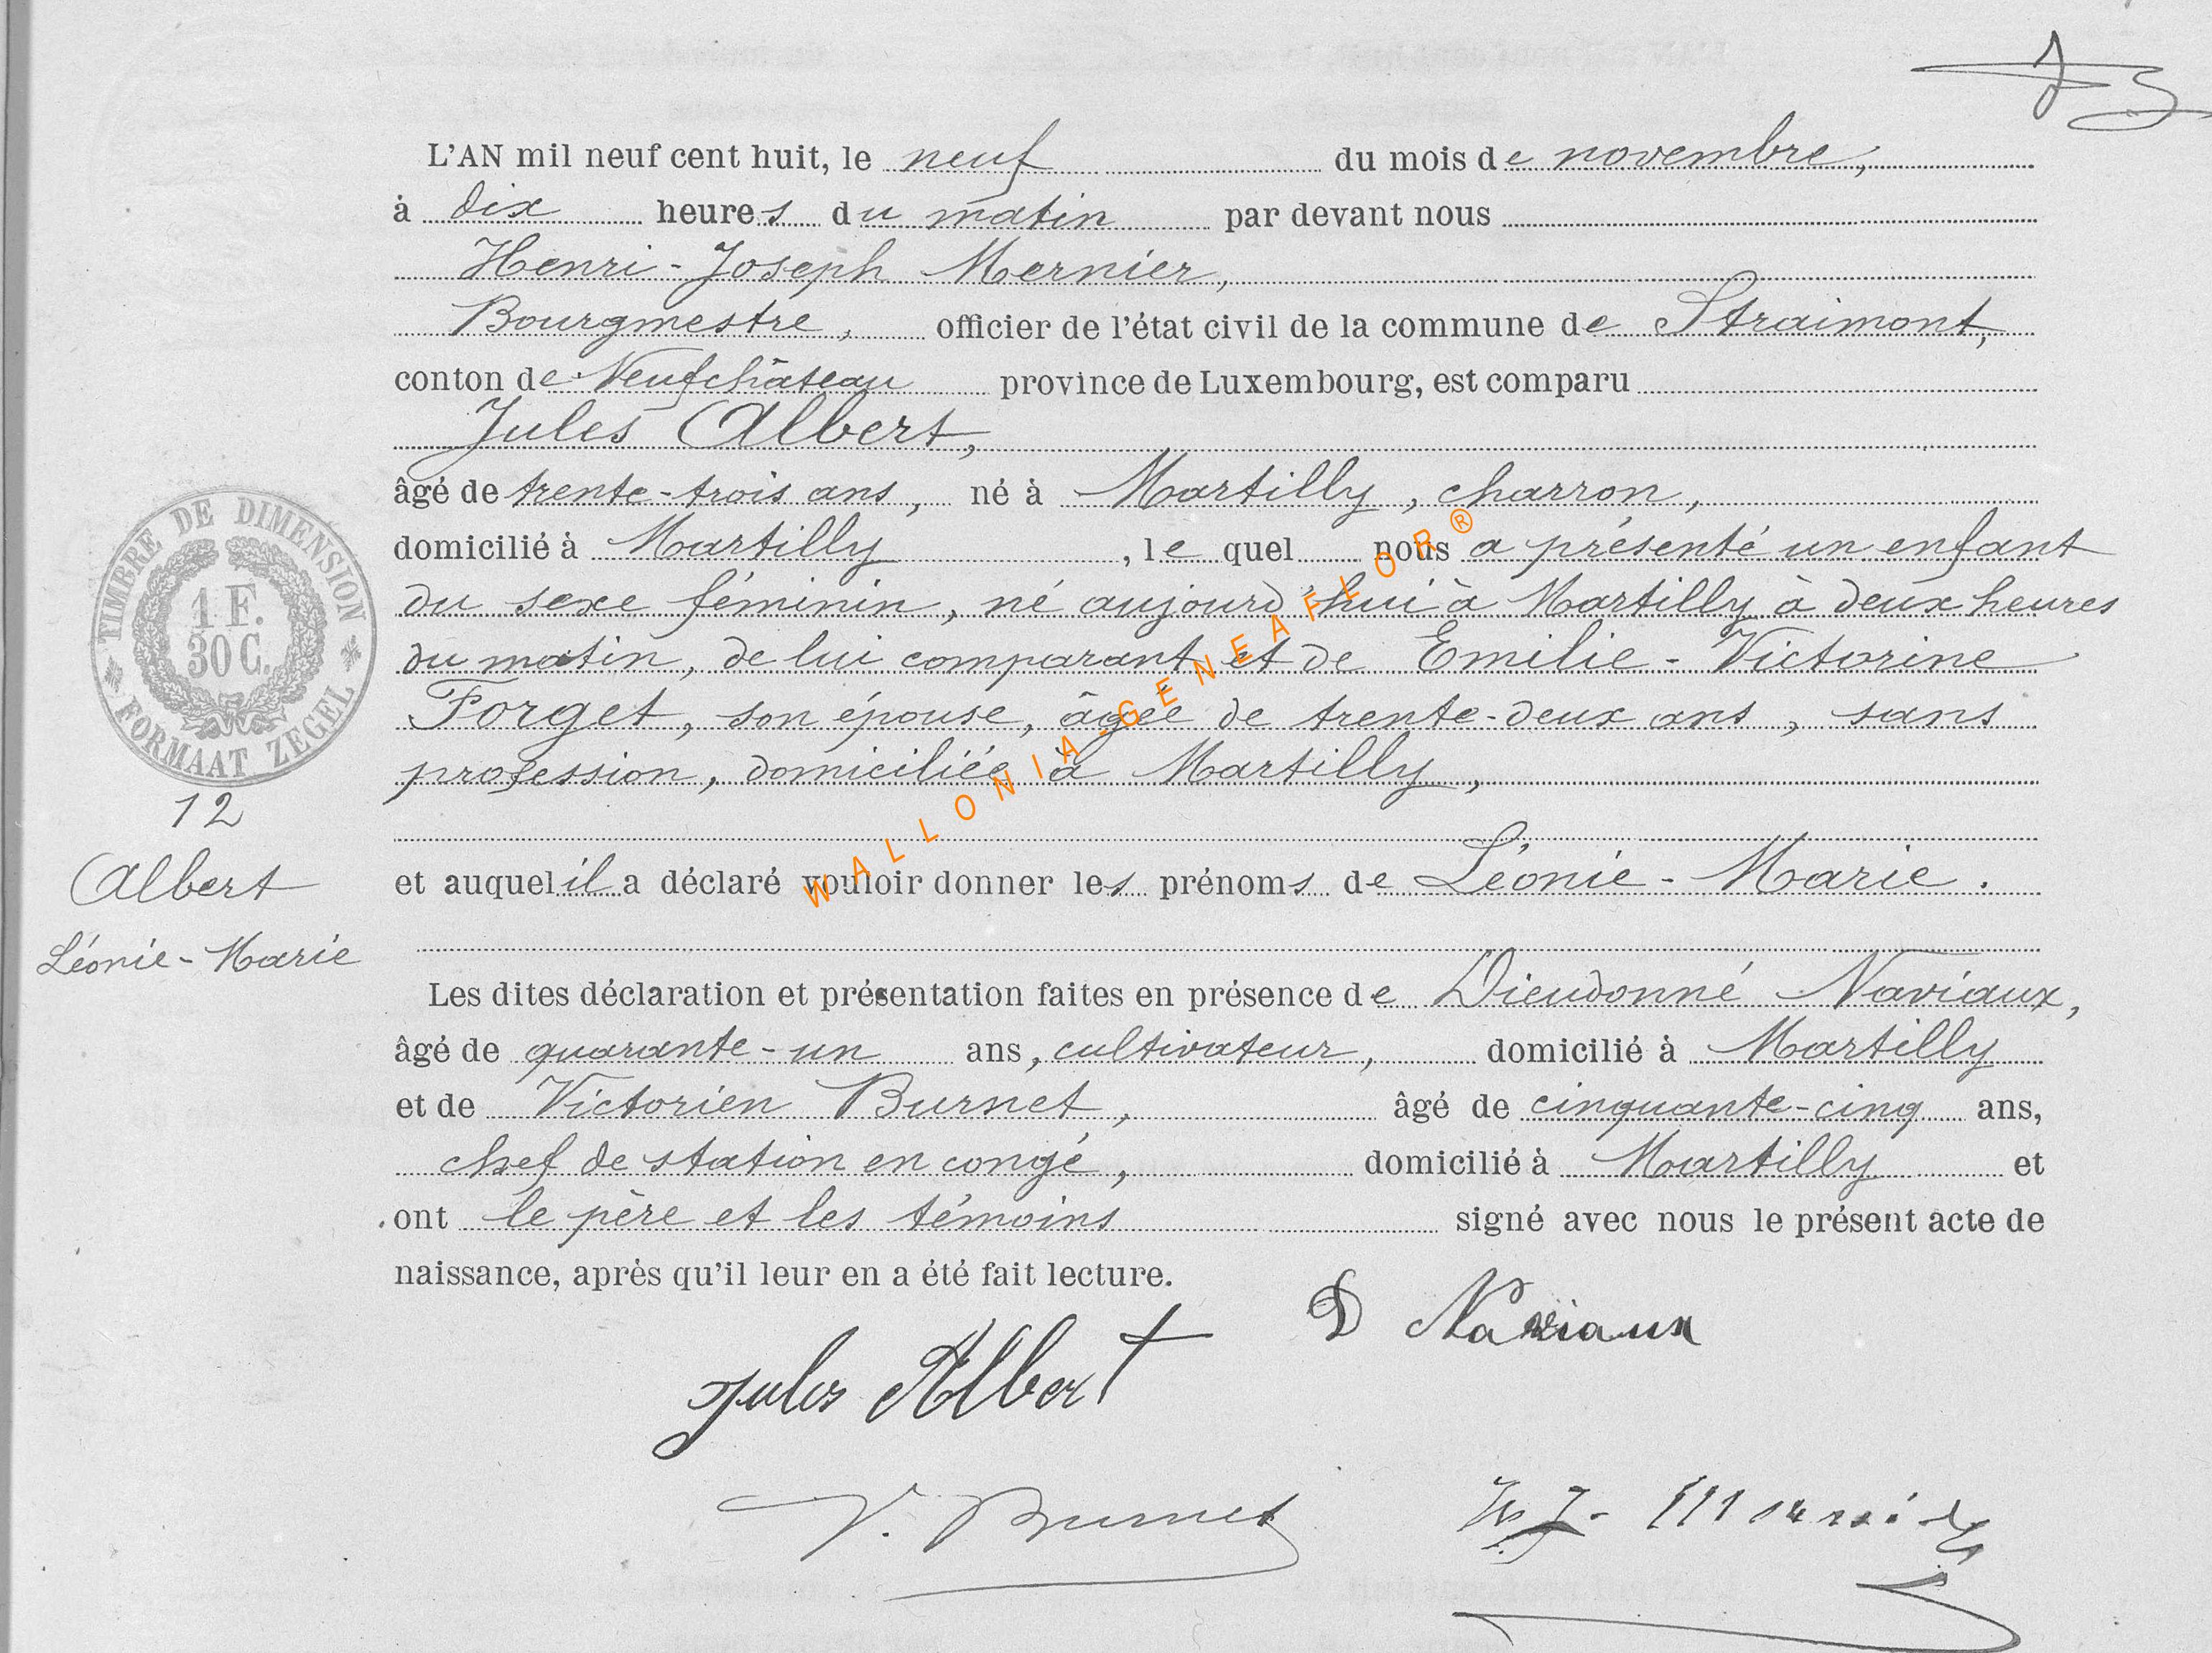 L'AN mil neuf cent huit, le neuf du mois de novembre,
à dix heures du matin par devant nous
Henri-Joseph Mernier,
Bourgmestre, officier de l'état civil de la commune de Straimont,
conton de Neufchâteau province de Luxembourg, est comparu
Jules Albert,
âgé de trente-trois ans, né à Martilly, charron,
domicilié à Martilly, le quel nous a présenté un enfant
du sexe féminin, né aujourd'hui à Martilly à deux heures
du matin, de lui comparant et de Emilie-Victorine
Forget, son épouse, âgée de trente-deux ans, sans
profession, domiciliée à Martilly,
et auquel il a déclaré vouloir donner les prénoms de Léonie-Marie.
Les dites déclaration et présentation faites en présence de Dieudonné Naviaux,
âgé de quarante-un ans, cultivateur, domicilié à Martilly
et de Victorien Burnet, âgé de cinquante-cinq ans,
chef de station en congé, domicilié à Martilly et
ont le père et les témoins signé avec nous le présent acte de
naissance, après qu'il leur en a été fait lecture.
D Naviaux
Jules Albert
V. Burnet
H J. Mernier
TIMBRE DE DIMENSION
1 F.
30 C.
FORMAAT ZEGEL
12
Albert
Léonie-Marie
WALLONIA-GENEAFLOR®